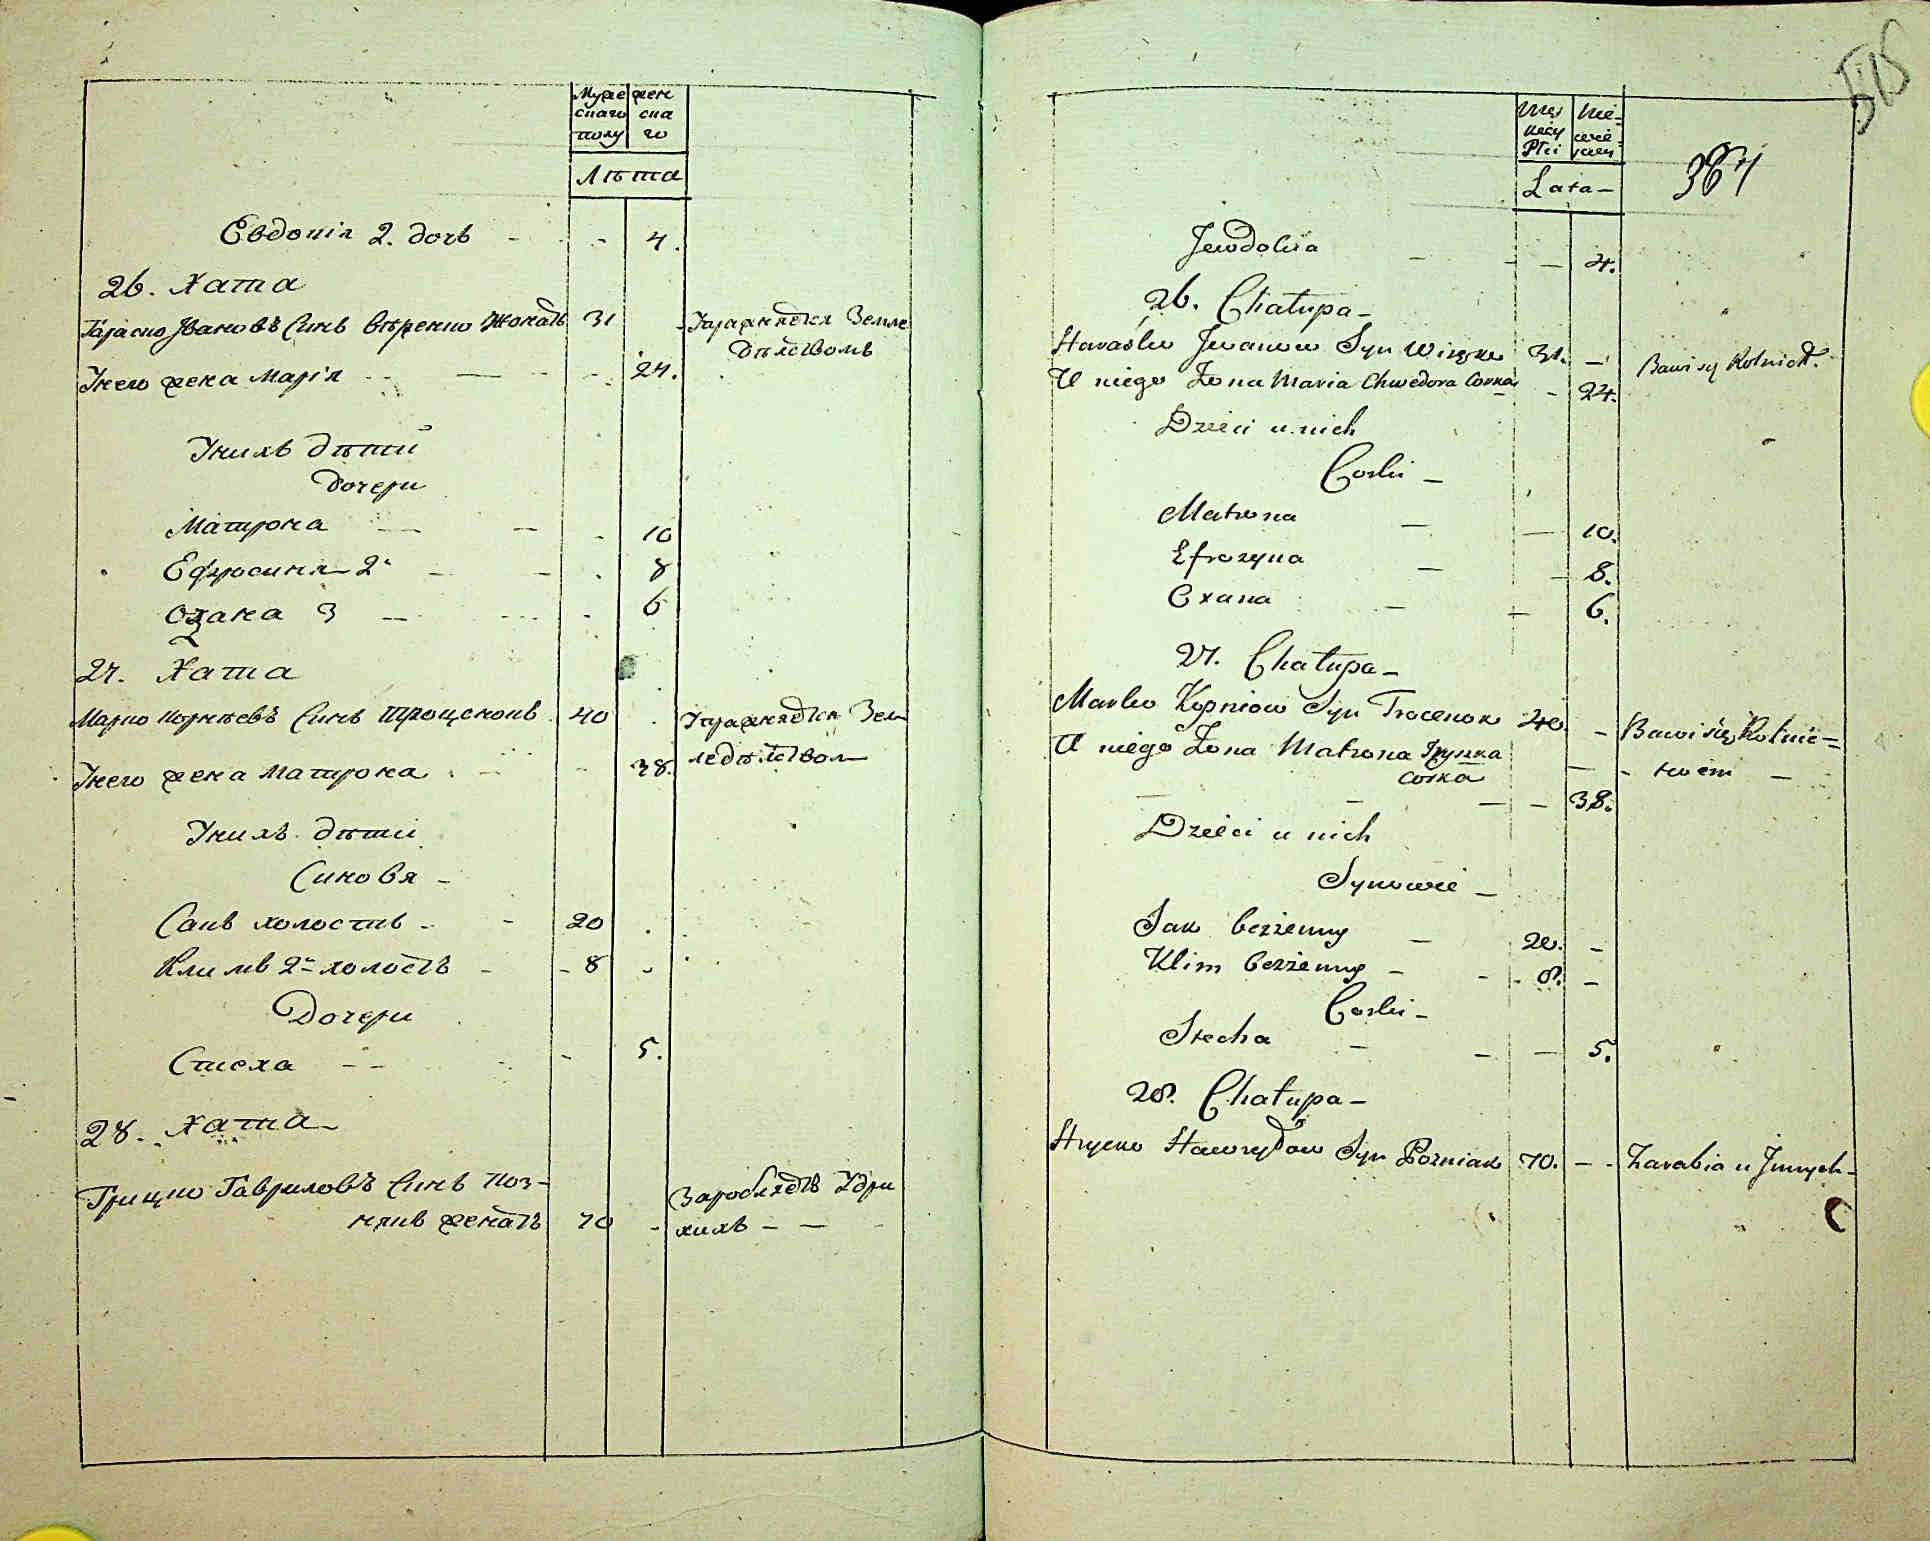 Муже жен
скаго ска
полу го
Лѣта
Евдокія 2. дочь - - 4.
26. Хата
Гараско Івановъ Синъ Жонатъ 31 Упражняется Земле
дѣлством
Унего жена Марія - - - 24.
Унихъ дѣти
Дочери
Матрона - - - 10
Ефросиния 2я - - - 8
Оxана 3 - - - 6
27. Хата
Марко Корнѣевъ Синъ Троценокъ 40 Упражняется Зем
ледѣлством
Унего жена Матрона - - 38.
Унихъ дѣти
Синовя -
Сакъ холостъ - - 20
Климъ 2й холостъ - - 8 -
Дочери
Стиеха - - - 5.
28. Хата
Грицко Гавриловъ Синъ Поз-
някъ женатъ 70 -
Заробляетъ Удру
хихъ - -
515
364
Męz Nie-
Płci
Lata -
Jewdokia - - - 4.
26. Chałupa -
Harasko Jwanow Syn 31. - Bawi się Rolnict.
U niego Żona Maria Chwedora Corka - - 24.
Dzieci u nich
Corki -
Matrona - - 10.
Efrozyna - - 8.
Oxana - - 6.
27. Chałupa -
Marko Kopniow Syn Trocenok 40. - Bawi się Rolnic=
U niego Żona Matrona Hrynka - - twem -
Corka
- - - - 38.
Dzieci u nich
Synowie -
Sak bezżenny - 20. -
Klim bezżenny - - 8. -
Corki -
Stecha - - - 5.
28. Chałupa -
Hrycko Hawryłow Syn Pozniak 70. - - Zarabia u Jnnych -